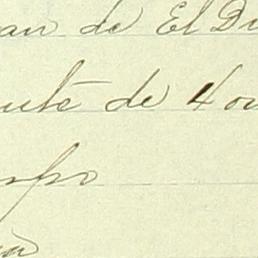 an de El Du
ute de 4 ou
mpo